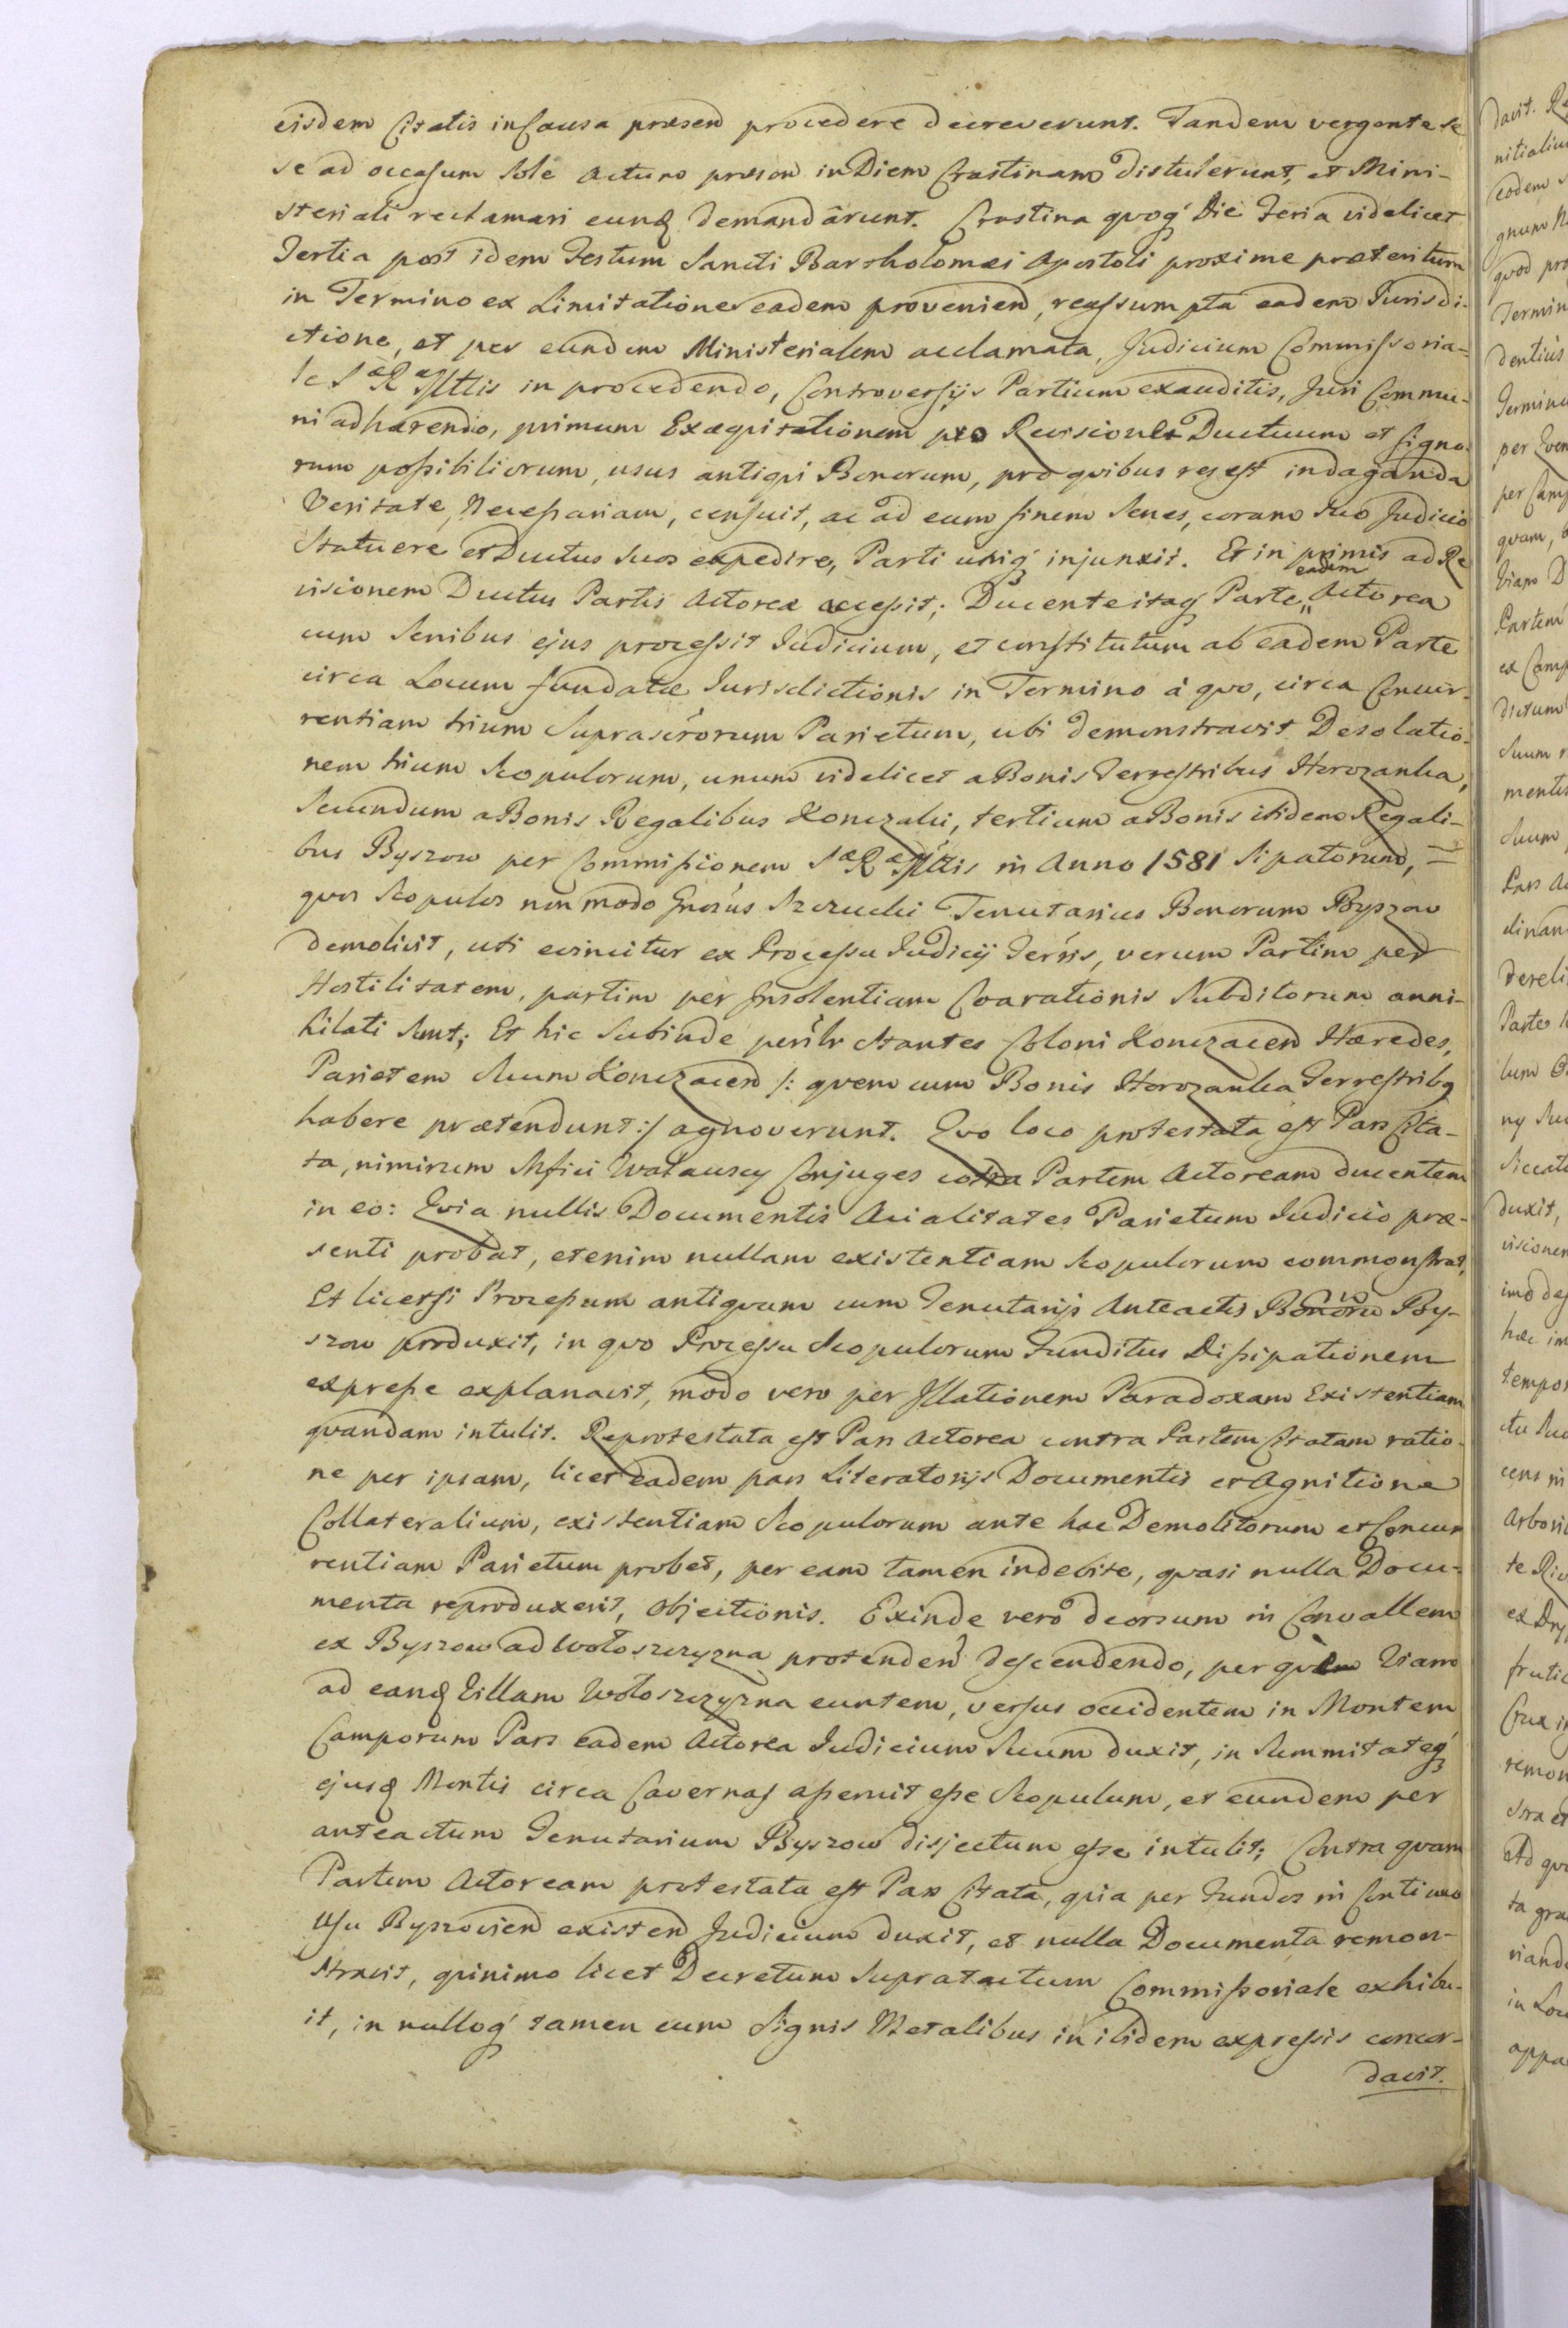 eisdem Citatis in Causa præsen procedere decreverunt. Tandem vergente se
se ad occasum Sole Actum præsen in Diem Crastinam distulerunt, et Mini-
steriali reclamari eunđ demandârunt. Crastina quoq́ Die Feria videlicet
Tertia post idem Festum Sancti Bartholomæi Apostoli proxime præteritum
in Termino ex Limitatione eadem provenien, reassumpta eadem Jurisdi-
ctione, et per eundem Ministerialem acclamata, Judicium Commissoria-
le Sæ Ræ Mttis in procedendo, Controversijs Partium exauditis, Juri Commu-
ni adhærendo, primum Exæquitationem pro Revisione Ductuum et Signo-
rum possibiliorum, usus antiqui Bonorum, pro quibus res est indaganda
Veritate, Necessariam, censuit, ac ad eum finem Senes, coram Suo Judicio
Statuere et Ductus Suos expedire, Parti utriq́ injunxit. Et in primis ad Re
visionem Ductus Partis Actoreæ accessit; Ducente itaq́ Parte „ eadem Actorea
cum Senibus ejus processit Judicium, et constitutum ab eadem Parte
circa Locum fundatæ Jurisdictionis in Termino à quo, circa Concur-
rentiam trium Suprascr̃orum Parietum, ubi demonstravit Desolatio-
nem trium Scopulorum, unum videlicet a Bonis Terrestribus Horozanka,
Secundum a Bonis Regalibus Konczaki, tertium a Bonis itidem Regali-
bus Byszow per Commissionem Sæ Ræ Mttis in Anno 1581 Sipatorum,
quos Scopulos non modo Gnosus Szczucki Tenutarius Bonorum Byszow
demolivit, uti evincitur ex Processu Judicij Terr̃is, verum Partim per
Hostilitatem, partim per Insolentiam Coarationis Subditorum anni-
hilati sunt; Et hic Subinde peñlr stantes Coloni Konczacen Hæredes,
Parietem Suum Konczacen /: quem cum Bonis Horozanka Terrestribq
habere prætendunt :/ agnoverunt. Quo loco protestata est Pars Cita-
ta, nimirum Mfici Watauscy Conjuges cotra Partem Actoream ducentem
in eo: Quia nullis Documentis Acialitates Parietum Judicio præ-
senti probat, etenim nullam existentiam Scopulorum commonstrat,
Et licet si Processum antiquum cum Tenutarijs Anteactis Bonorũ By-
szow produxit, in quo Processu Scopulorum Funditus Dissipationem
expresse explanavit, modo vero per Illationem Paradoxam Existentiam
quandam intulit. Reprotestata est Pars Actorea contra Partem Citatam ratio-
ne per ipsam, licet eadem pars Literatorijs Documentis et Agnitione
Collateralium, existentiam Scopulorum ante hac Demolitorum et Concur
rentiam Parietum probet, per eam tamen indebite, quasi nulla Docu-
menta reproduxerit, Objectionis. Exinde verò deorsum in Convallem
ex Byszow ad Wołoszczyzna protenden descendendo, per quam Viam
ad eanđ Villam Wołoszczyzna euntem, versus occidentem in Montem
Camporum Pars eadem Actorea Judicium Suum duxit, in Summitateq́
ejusđ Montis circa Cavernas asseruit esse Scopulum, et eundem per
anteactum Tenutarium Byszow disjectum esse intulit; Contra quam
Partem Actoream protestata est Pars Citata, quia per Fundos in Continuo
Usu Byszovien existen Judicium duxit, et nulla Documenta remon-
stravit, quinimo licet Decretum Supratactum Commissoriale exhibu-
it, in nulloq́ tamen cum Signis Metalibus in ibidem expressis concor-
davit.